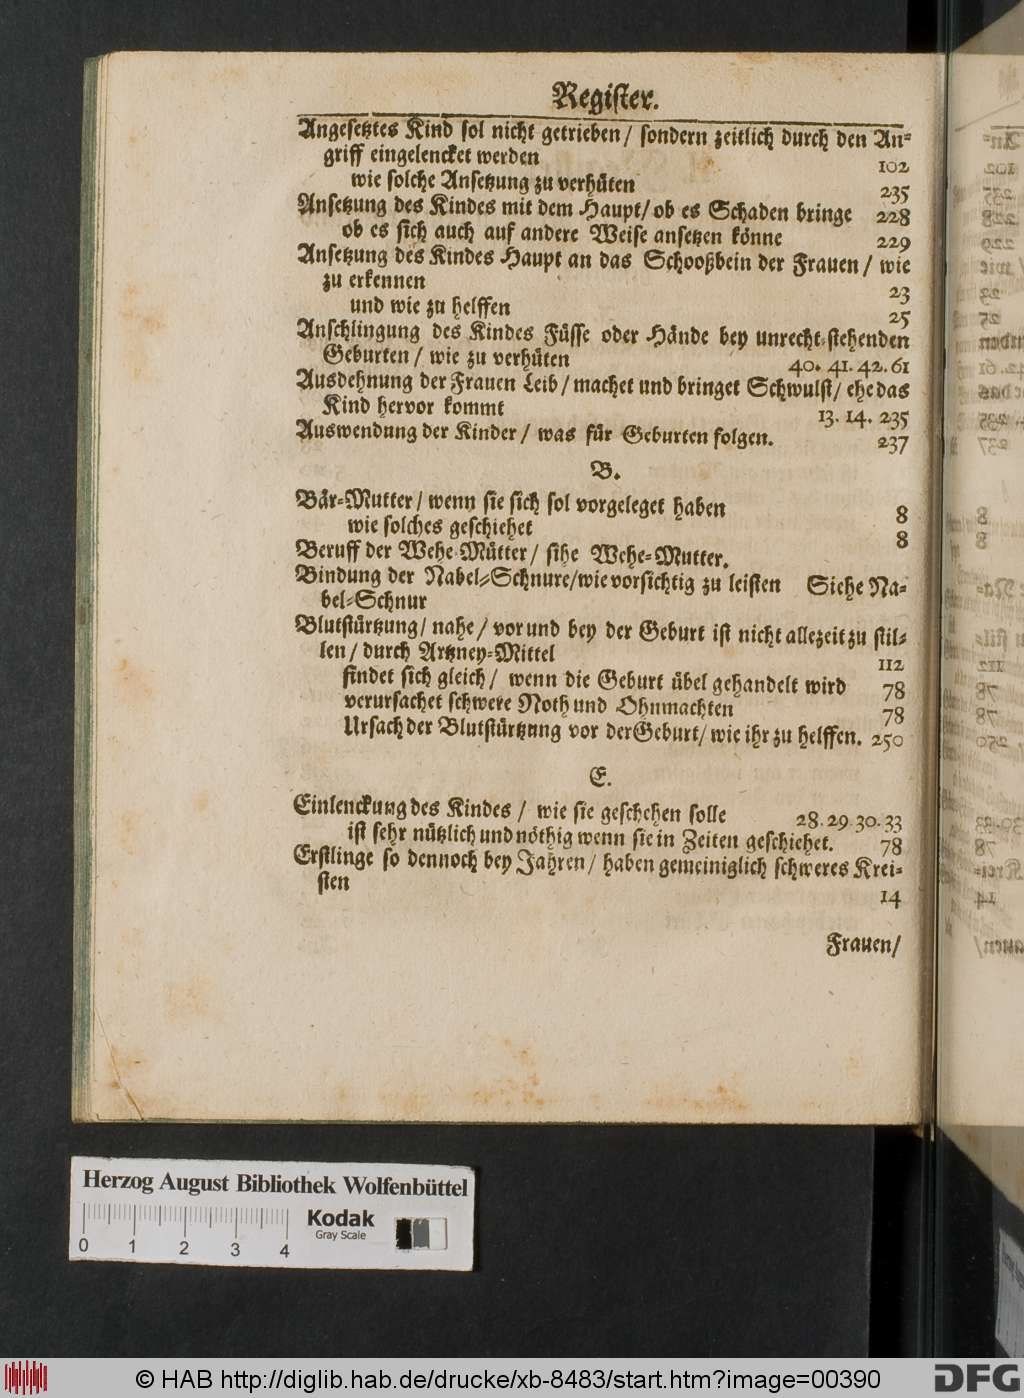 Register.
Angesetztes Kind sol nicht getrieben / sondern zeitlich durch den An-
griff eingelencket werden 102
wie solche Ansetzung zu verhüten 235
Ansetzung des Kindes mit dem Haupt / ob es Schaden bringe 228
ob es sich auch auf andere Weise ansetzen könne 229
Ansetzung des Kindes Haupt an das Schooßbein der Frauen / wie
zu erkennen 23
und wie zu helffen 25
Anschlingung des Kindes Füsse oder Hände bey unrecht-stehenden
Geburten / wie zu verhüten 40. 41. 42. 61
Ausdehnung der Frauen Leib / machet und bringet Schwulst / ehe das
Kind hervor kommt 13. 14. 235
Auswendung der Kinder / was für Geburten folgen. 237
B.
Bär-Mutter / wenn sie sich sol vorgeleget haben 8
wie solches geschiehet 8
Beruff der Wehe-Mütter / sihe Wehe-Mutter.
Bindung der Nabel-Schnure / wie vorsichtig zu leisten Siehe Na-
bel-Schnur
Blutstürtzung / nahe / vor und bey der Geburt ist nicht allezeit zu stil-
len / durch Artzney-Mittel 112
findet sich gleich / wenn die Geburt übel gehandelt wird 78
verursachet schwere Noth und Ohnmachten 78
Ursach der Blutstürtzung vor der Geburt / wie ihr zu helffen. 250
E.
Einlenckung des Kindes / wie sie geschehen solle 28. 29. 30. 33
ist sehr nützlich und nöthig wenn sie in Zeiten geschiehet. 78
Erstlinge so dennoch bey Jahren / haben gemeiniglich schweres Krei-
sten 14
Frauen /
Herzog August Bibliothek Wolfenbüttel
Kodak
Gray Scale
0 1 2 3 4
© HAB http://diglib.hab.de/drucke/xb-8483/start.htm?image=00390
DFG